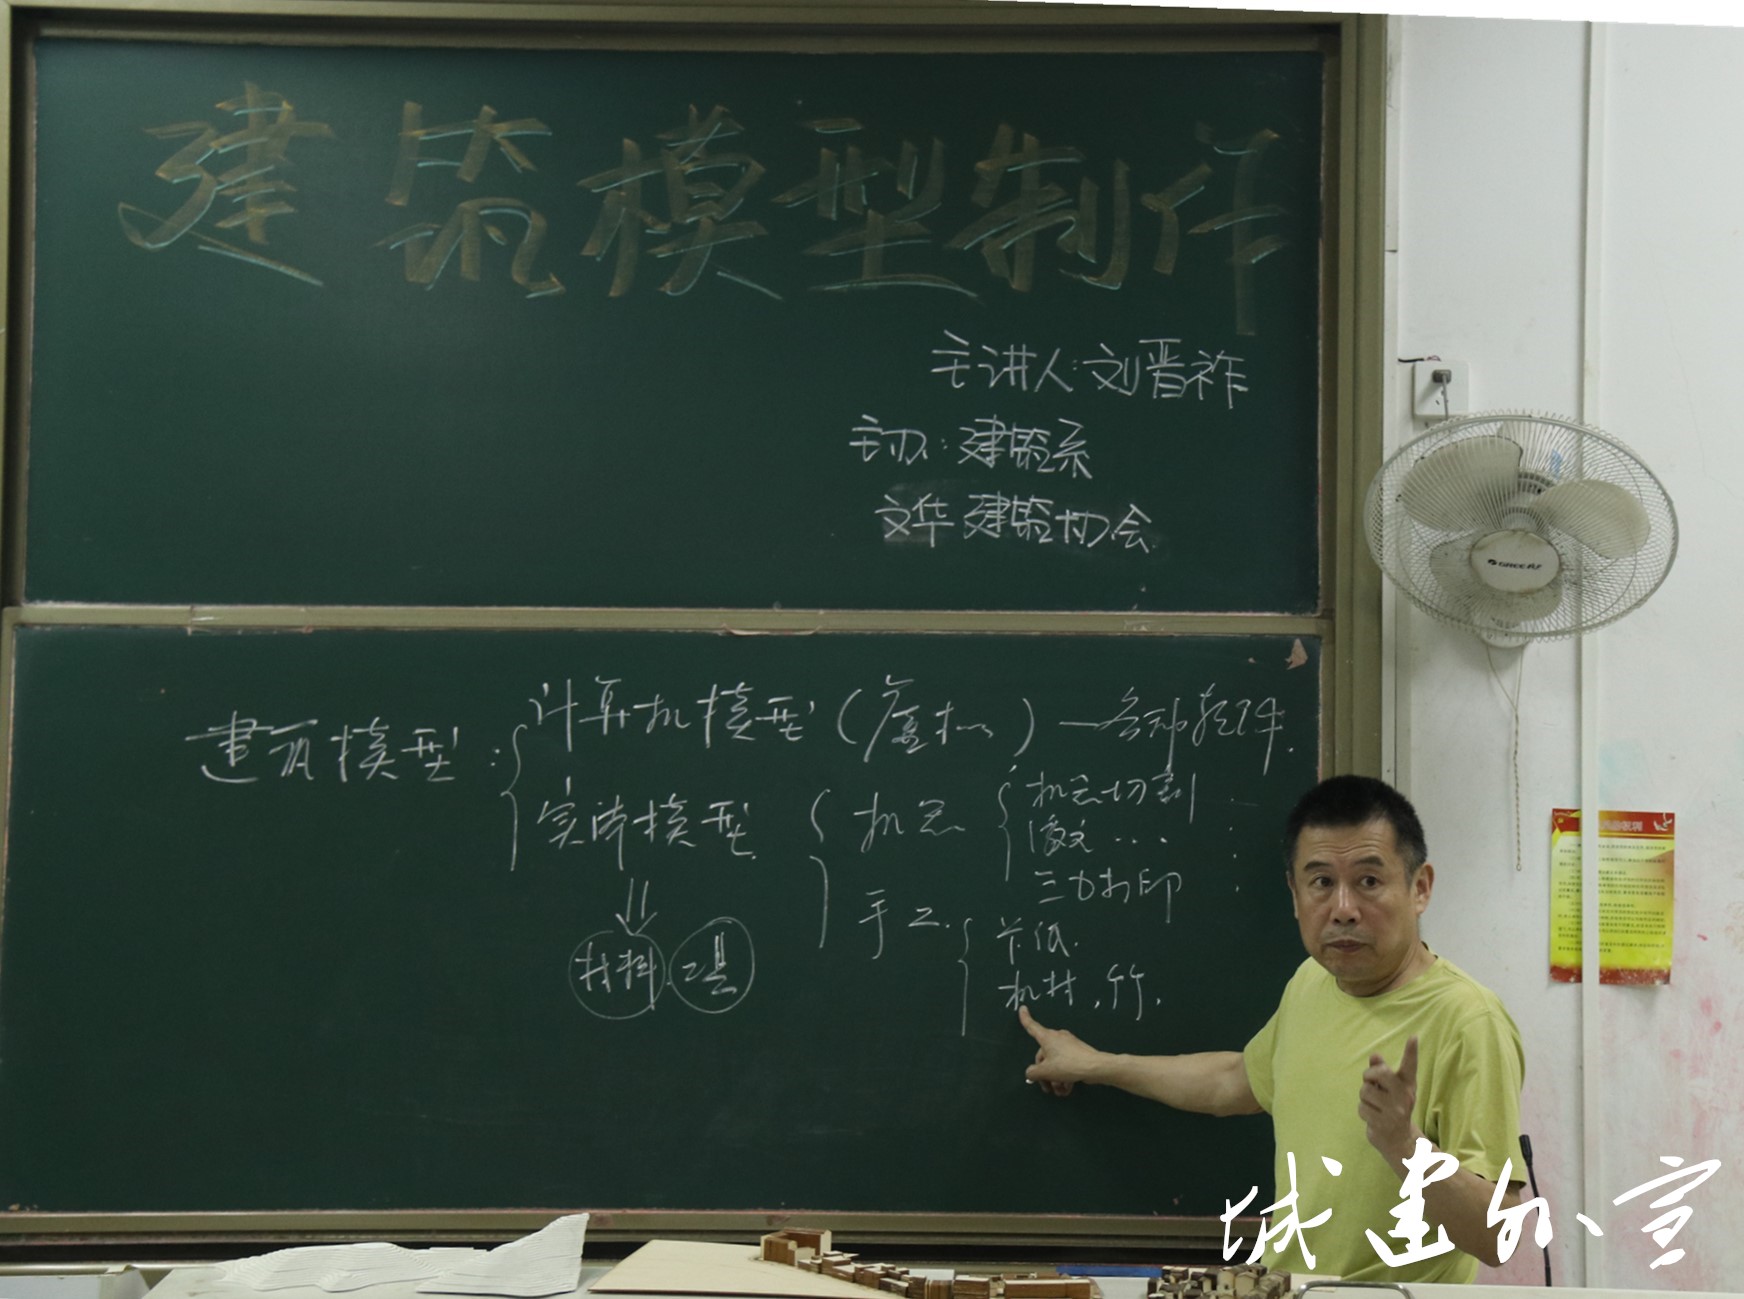 建筑模型制作
主讲人:刘晋祚
主办:建筑系
文华建筑协会
建筑模型:
计算机模型(虚拟)—各种软件.
实体模型
机器
机器切割
激光...
三D打印
手工.
卡纸.
机材,竹.
材料 工具
GREE
城建外宣